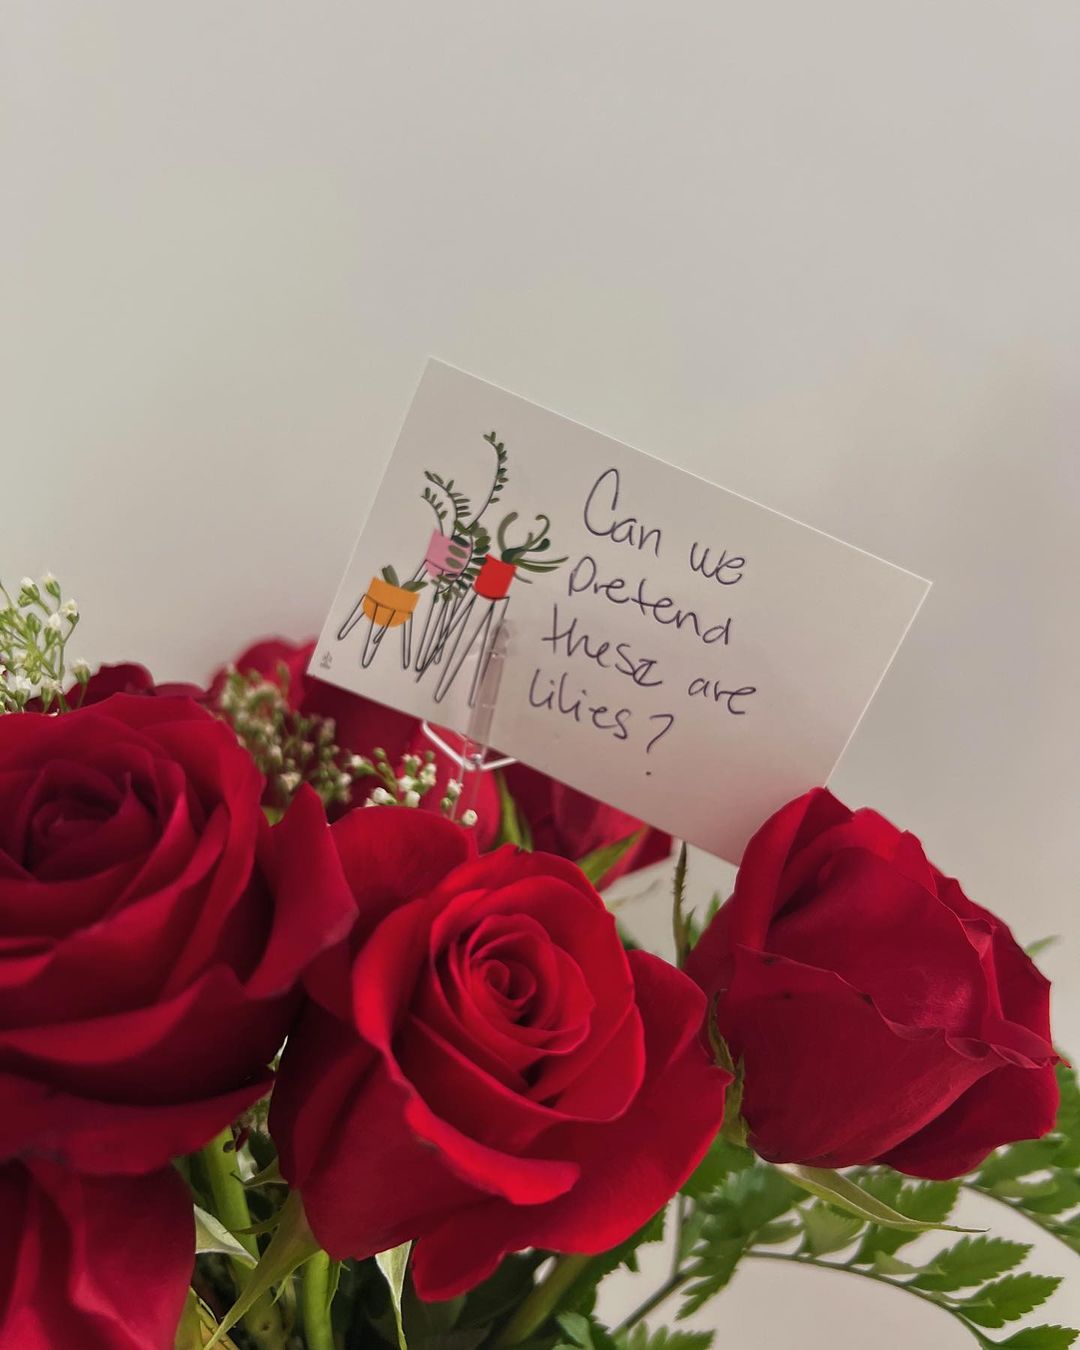 Can we
pretend
these are
lilies?